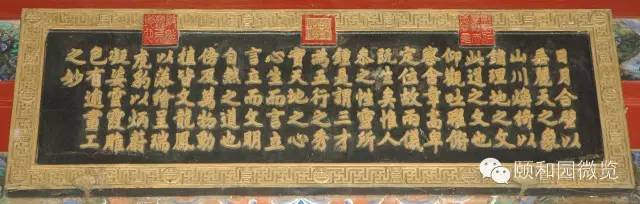 日月合璧以
垂麗天之象
山川煥綺以
理地之文
此道之文也
仰觀吐曜俯
察含章高卑
定位故兩儀
既生矣惟人
參之性靈所
鍾是謂三才
為五行之秀
實天地之心
心生而言立
言立而文明
自然之道也
傍及萬物動
植皆文龍鳳
以藻繪呈瑞
虎豹以炳蔚
凝姿雲霞雕
色有逾畫工
之妙
颐和园微览